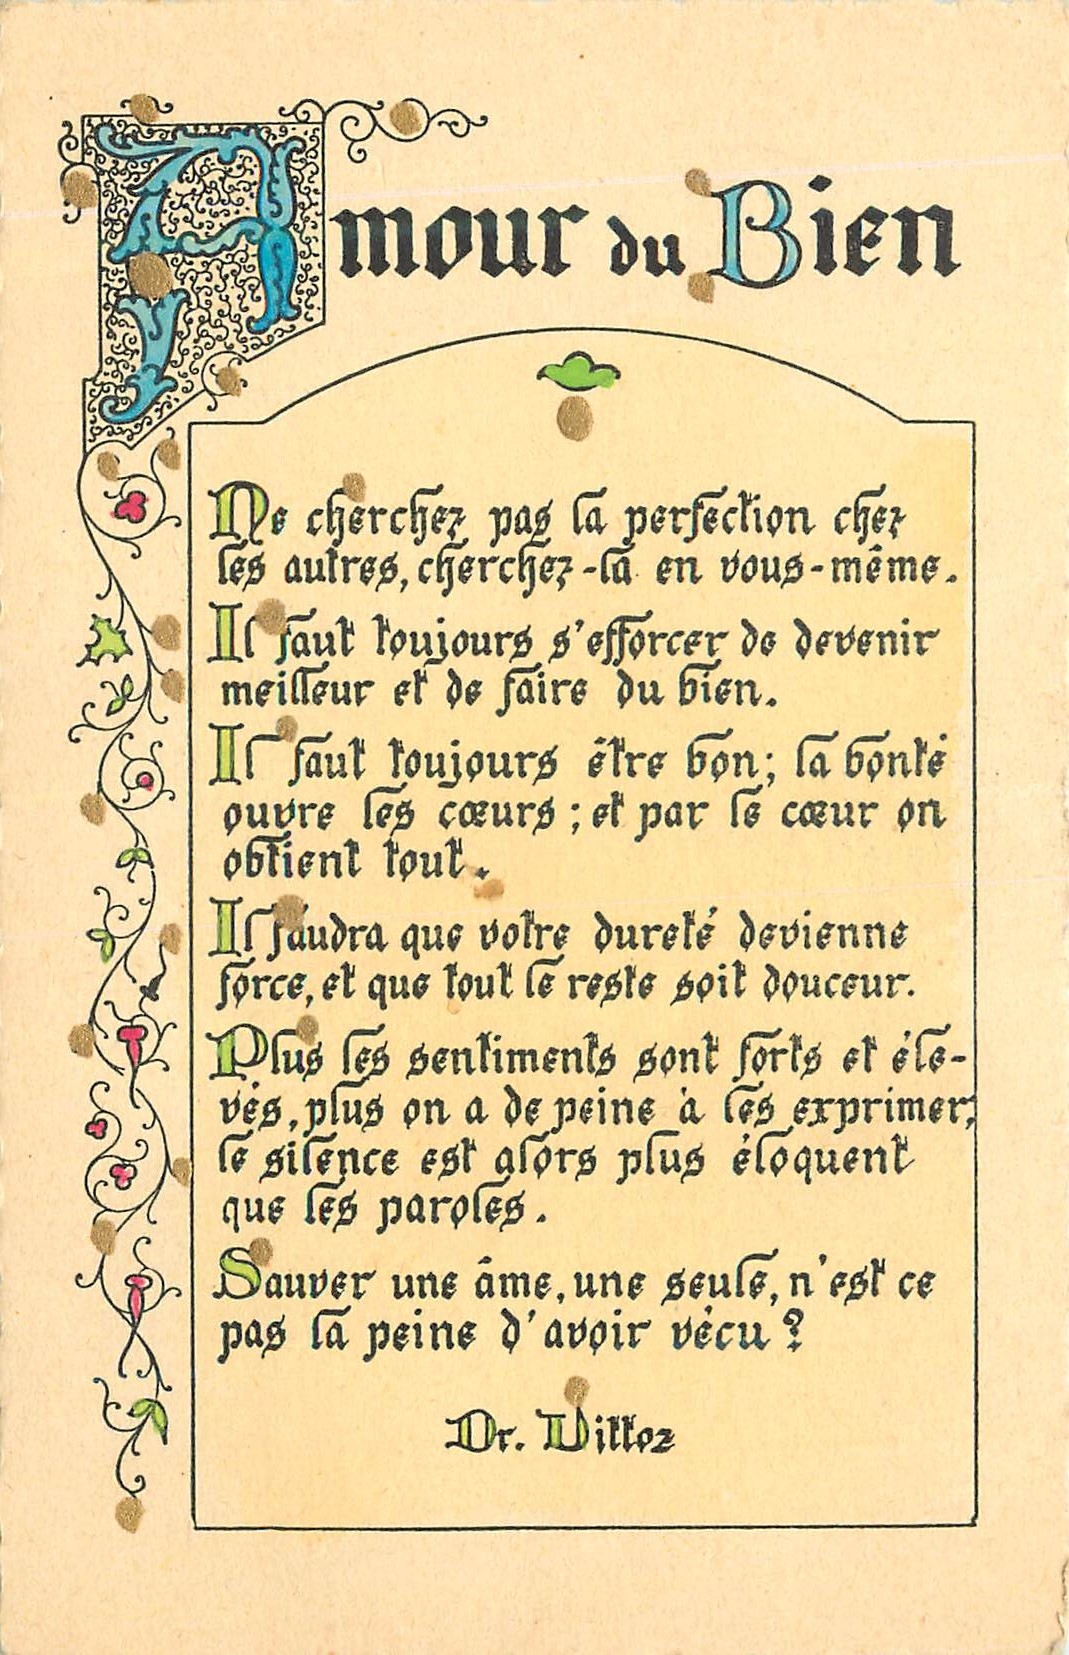 Amour du Bien
Ne cherchez pas la perfection chez
les autres, cherchez-la en vous-même.
Il faut toujours s'efforcer de devenir
meilleur et de faire du bien.
Il faut toujours être bon; la bonté
ouvre les cœurs; et par le cœur on
obtient tout.
Il faudra que votre dureté devienne
force, et que tout le reste soit douceur.
Plus les sentiments sont forts et éle-
vés, plus on a de peine à les exprimer;
le silence est alors plus éloquent
que les paroles.
Sauver une âme, une seule, n'est ce
pas la peine d'avoir vécu?
Dr. Vittoz